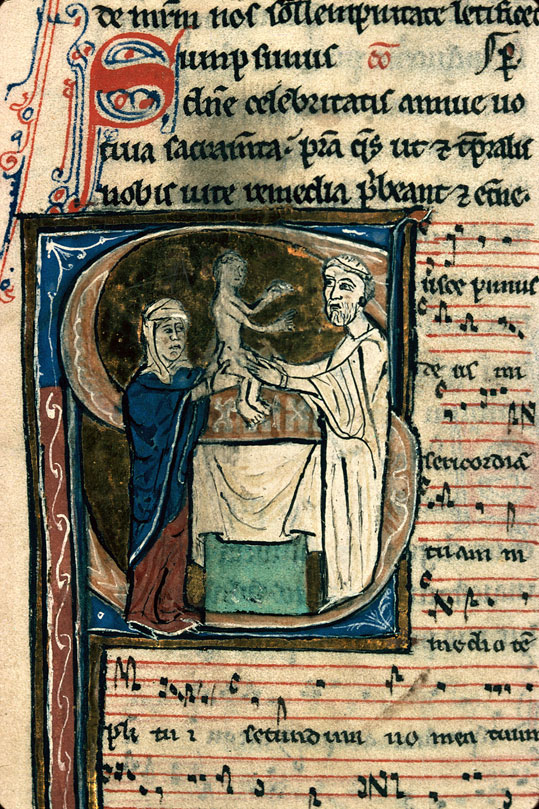 de nr̄m nos sollempnitate letificet
Sumpsimus
dn̄e celebritatis annue uo
tiua sacram̄ta · p̄ta q̄s ut ⁊ t̄pralis
nobis uite remedia p̄beant ⁊ et̄ne.
Suscepimus
de us mi
sericordiā
tuam in
medio tē
pli tu i secundum no men tuum